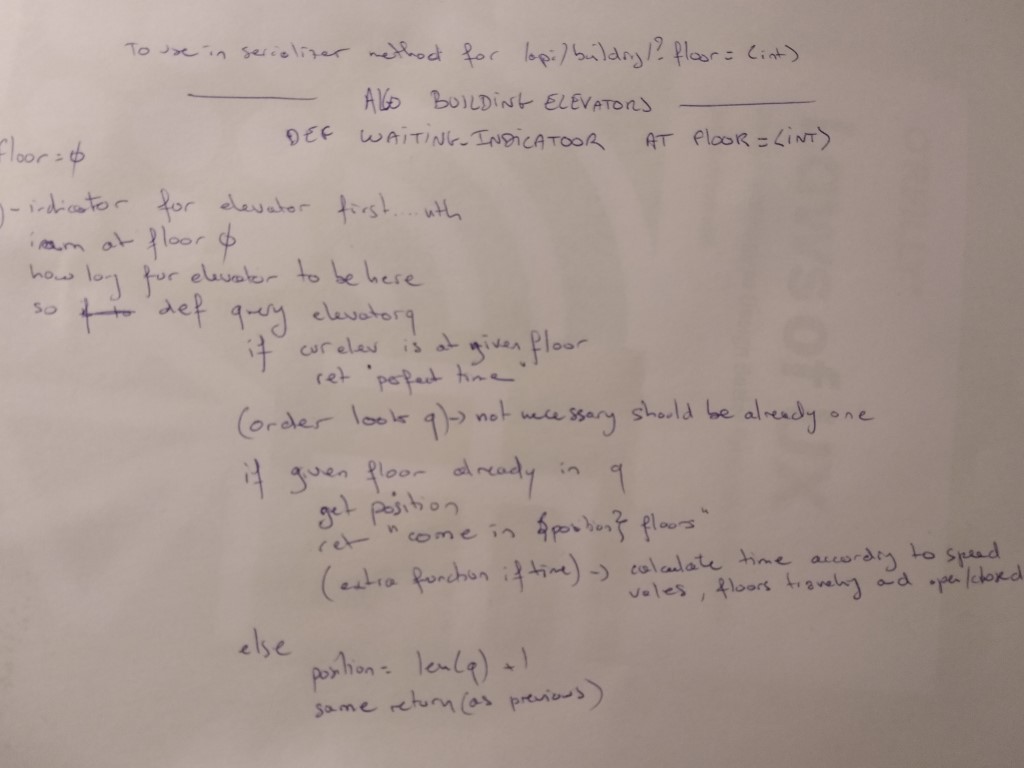 To use in serializer method for /api/building/?floor=(int)
ALGO BUILDING ELEVATORS
DEF WAITING_INDICATOOR AT FLOOR=(INT)
floor = ϕ
- indicator for elevator first....nth
at floor ϕ
how long for elevator to be here
so def query elevatorq
if cur elev is at given floor
ret "perfect time"
(order looks q) → not necessary should be already one
if given floor already in q
get position
ret "come in ${position} floors"
(extra function if time) → calculate time according to speed
, floors traveling and open/closed
else
position = len(q) + 1
same return (as previous)